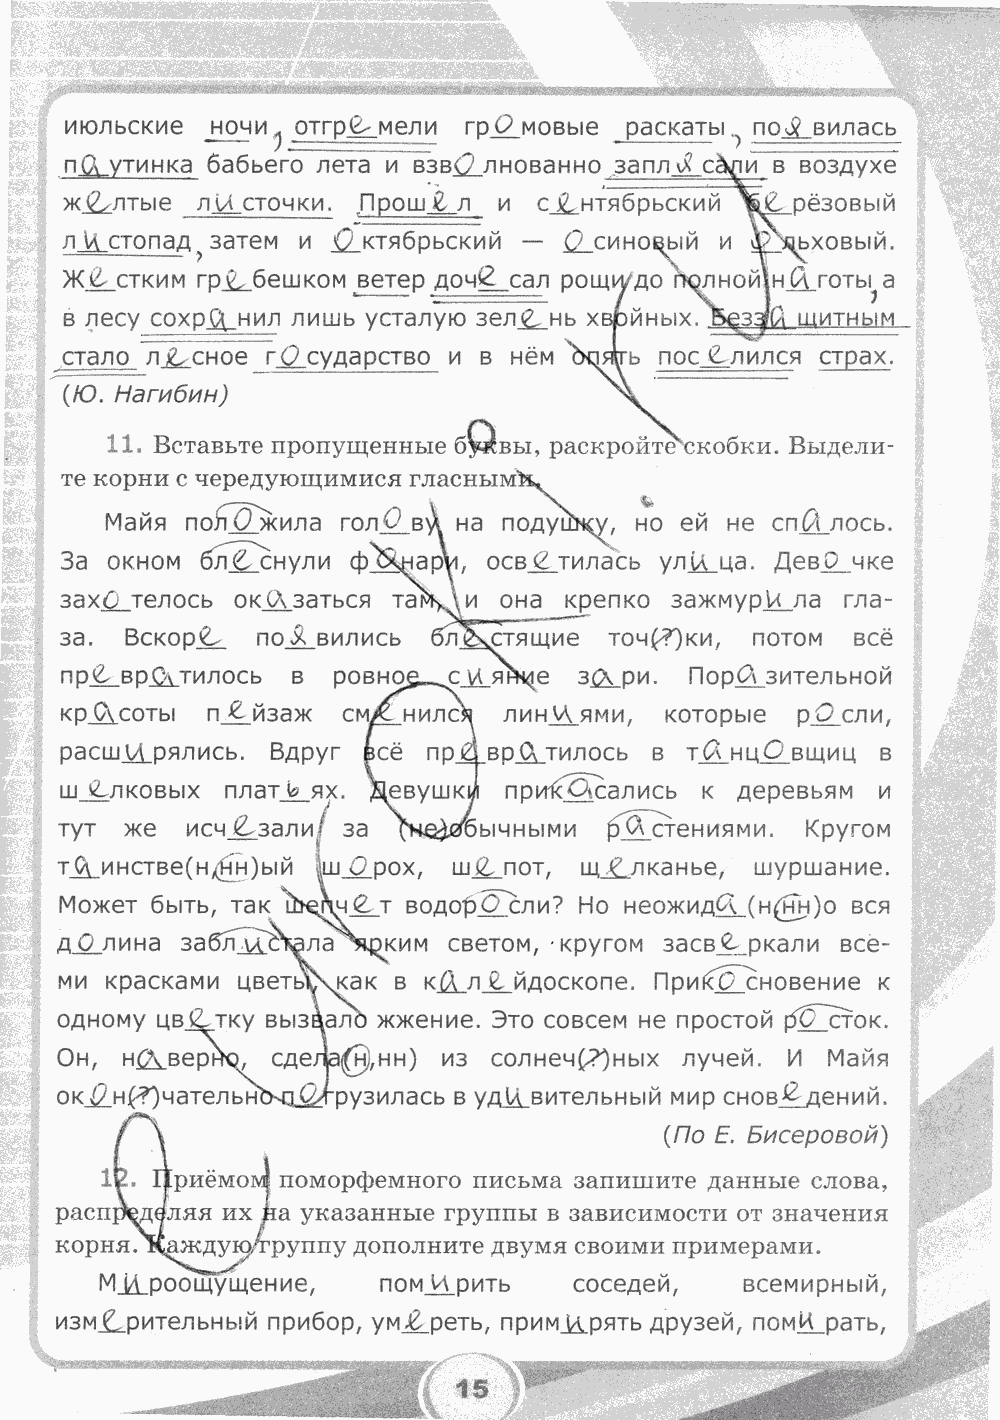 июльские ночи, отгремели громовые раскаты, появилась
паутинка бабьего лета и взволнованно заплясали в воздухе
желтые листочки. Прошел и сентябрьский берёзовый
листопад, затем и октябрьский — осиновый и ольховый.
Жестким гребешком ветер дочесал рощи до полной наготы, а
в лесу сохранил лишь усталую зелень хвойных. Беззащитным
стало лесное государство и в нём опять поселился страх.
(Ю. Нагибин)
11. Вставьте пропущенные буквы, раскройте скобки. Выдели-
те корни с чередующимися гласными.
Майя положила голову на подушку, но ей не спалось.
За окном блеснули фонари, осветилась улица. Девочке
захотелось оказаться там, и она крепко зажмурила гла-
за. Вскоре появились блестящие точ(?)ки, потом всё
превратилось в ровное сияние зари. Поразительной
красоты пейзаж сменился линиями, которые росли,
расширялись. Вдруг всё превратилось в танцовщиц в
шелковых платьях. Девушки прикасались к деревьям и
тут же исчезали за (не)обычными растениями. Кругом
таинстве(н,нн)ый шорох, шепот, щелканье, шуршание.
Может быть, так шепчет водоросли? Но неожида(н,нн)о вся
долина заблистала ярким светом, кругом засверкали все-
ми красками цветы, как в калейдоскопе. Прикосновение к
одному цветку вызвало жжение. Это совсем не простой росток.
Он, наверно, сдела(н,нн) из солнеч(?)ных лучей. И Майя
окон(?)чательно погрузилась в удивительный мир сновedений.
(По Е. Бисеровой)
12. Приёмом поморфемного письма запишите данные слова,
распределяя их на указанные группы в зависимости от значения
корня. Каждую группу дополните двумя своими примерами.
Мироощущение, помирить соседей, всемирный,
измерительный прибор, умереть, примирять друзей, помирать,
15